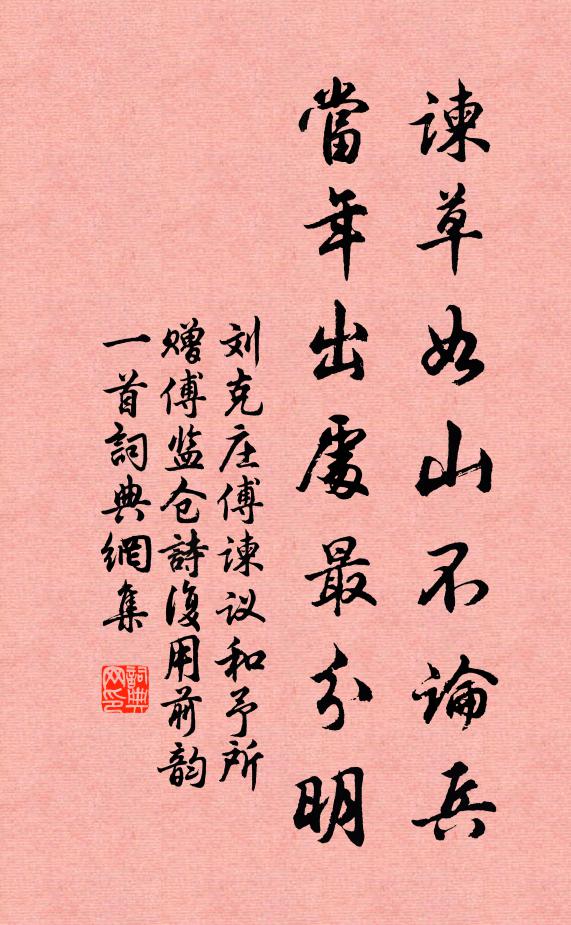 諫草如山不論兵
當年出處最分明
刘克庄傅諫议和予所
赠傅监仓詩復用前韵
一首詞典網集
詞典网印